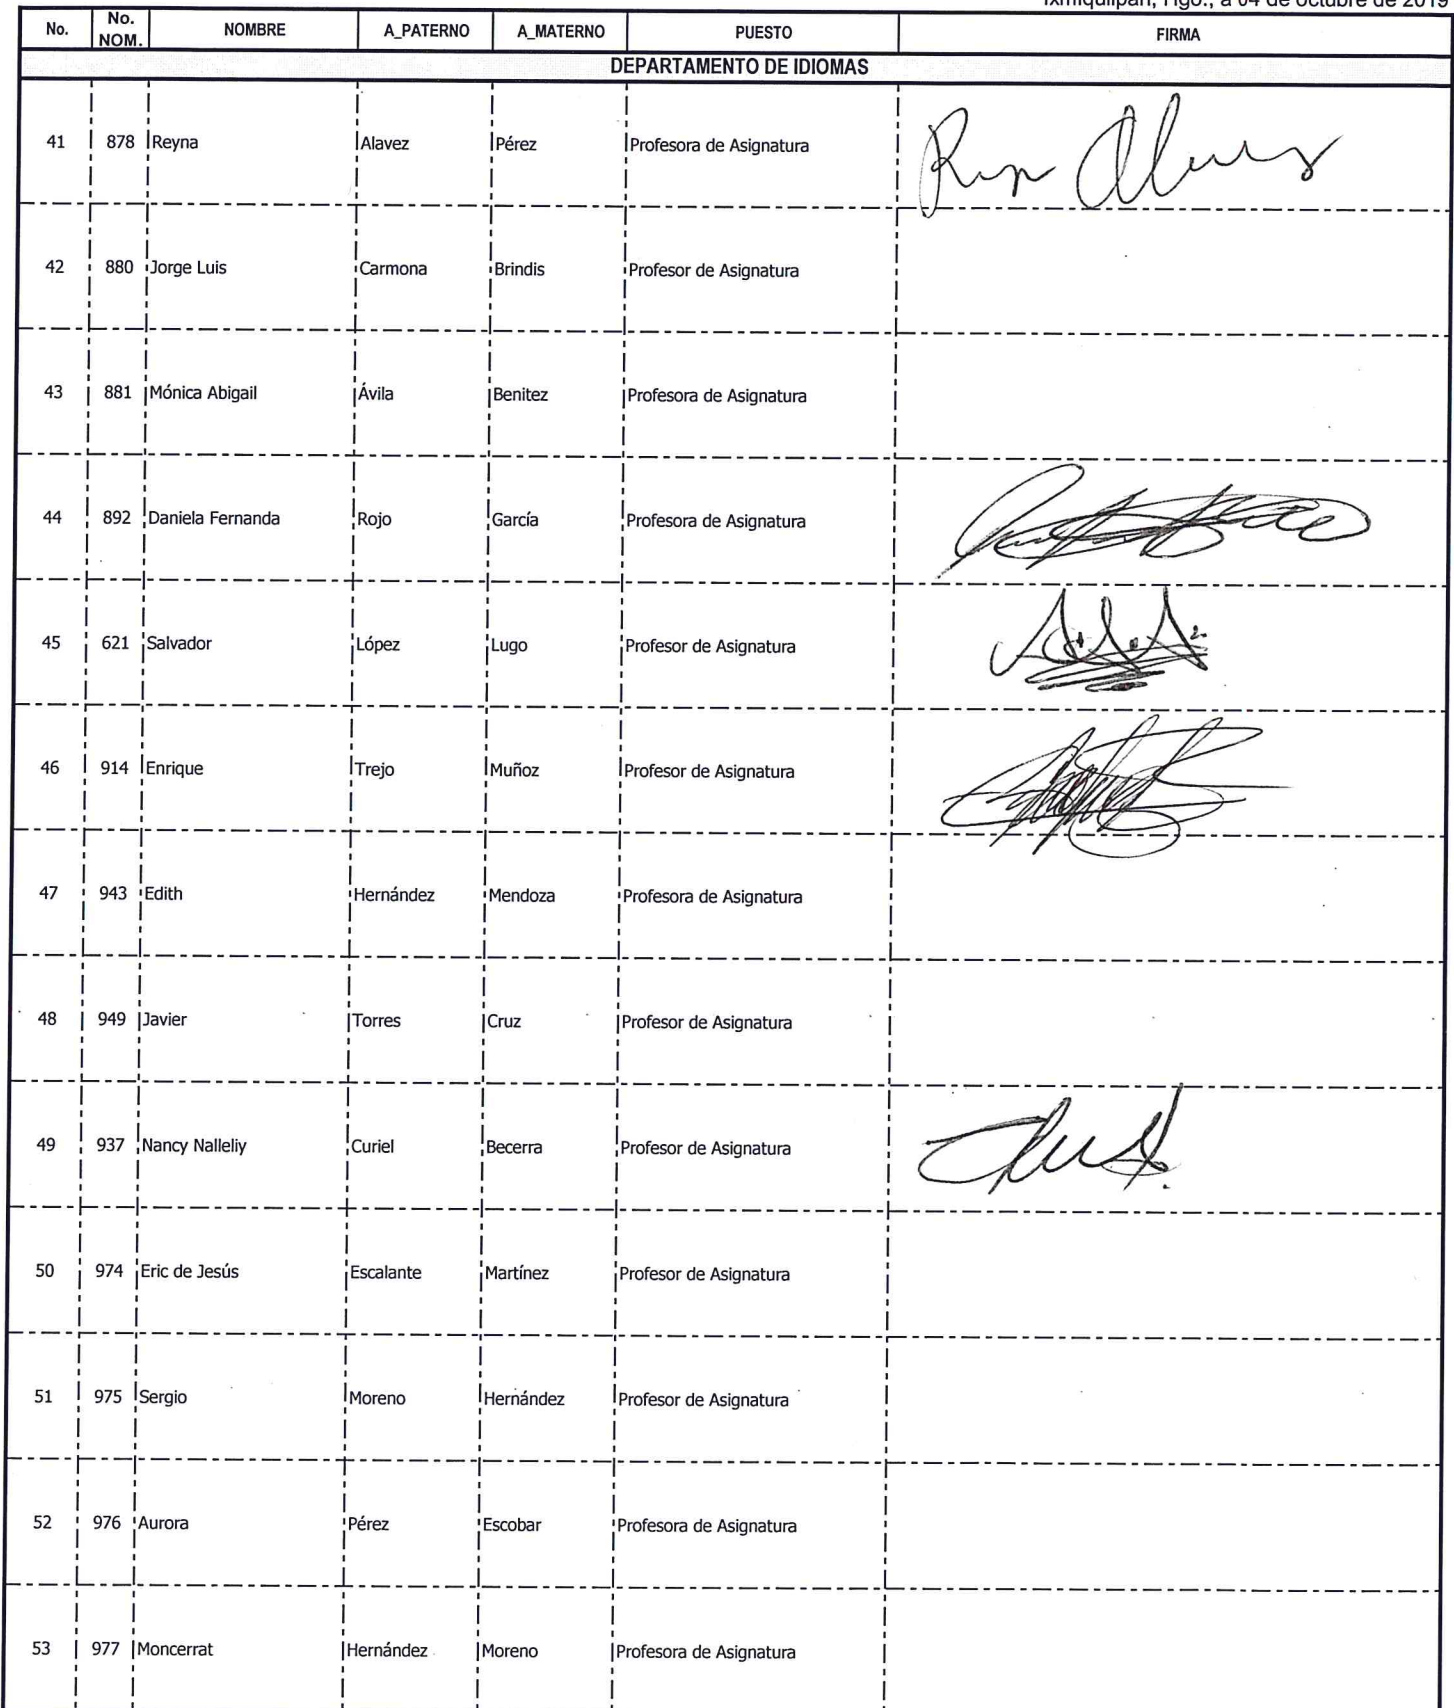 Ixmiquilpan, Hgo., a 04 de octubre de 2019
No. No. NOM. NOMBRE A_PATERNO A_MATERNO PUESTO FIRMA
DEPARTAMENTO DE IDIOMAS
41 878 Reyna Alavez Pérez Profesora de Asignatura
42 880 Jorge Luis Carmona Brindis Profesor de Asignatura
43 881 Mónica Abigail Ávila Benitez Profesora de Asignatura
44 892 Daniela Fernanda Rojo García Profesora de Asignatura
45 621 Salvador López Lugo Profesor de Asignatura
46 914 Enrique Trejo Muñoz Profesor de Asignatura
47 943 Edith Hernández Mendoza Profesora de Asignatura
48 949 Javier Torres Cruz Profesor de Asignatura
49 937 Nancy Nalleliy Curiel Becerra Profesor de Asignatura
50 974 Eric de Jesús Escalante Martínez Profesor de Asignatura
51 975 Sergio Moreno Hernández Profesor de Asignatura
52 976 Aurora Pérez Escobar Profesora de Asignatura
53 977 Moncerrat Hernández Moreno Profesora de Asignatura